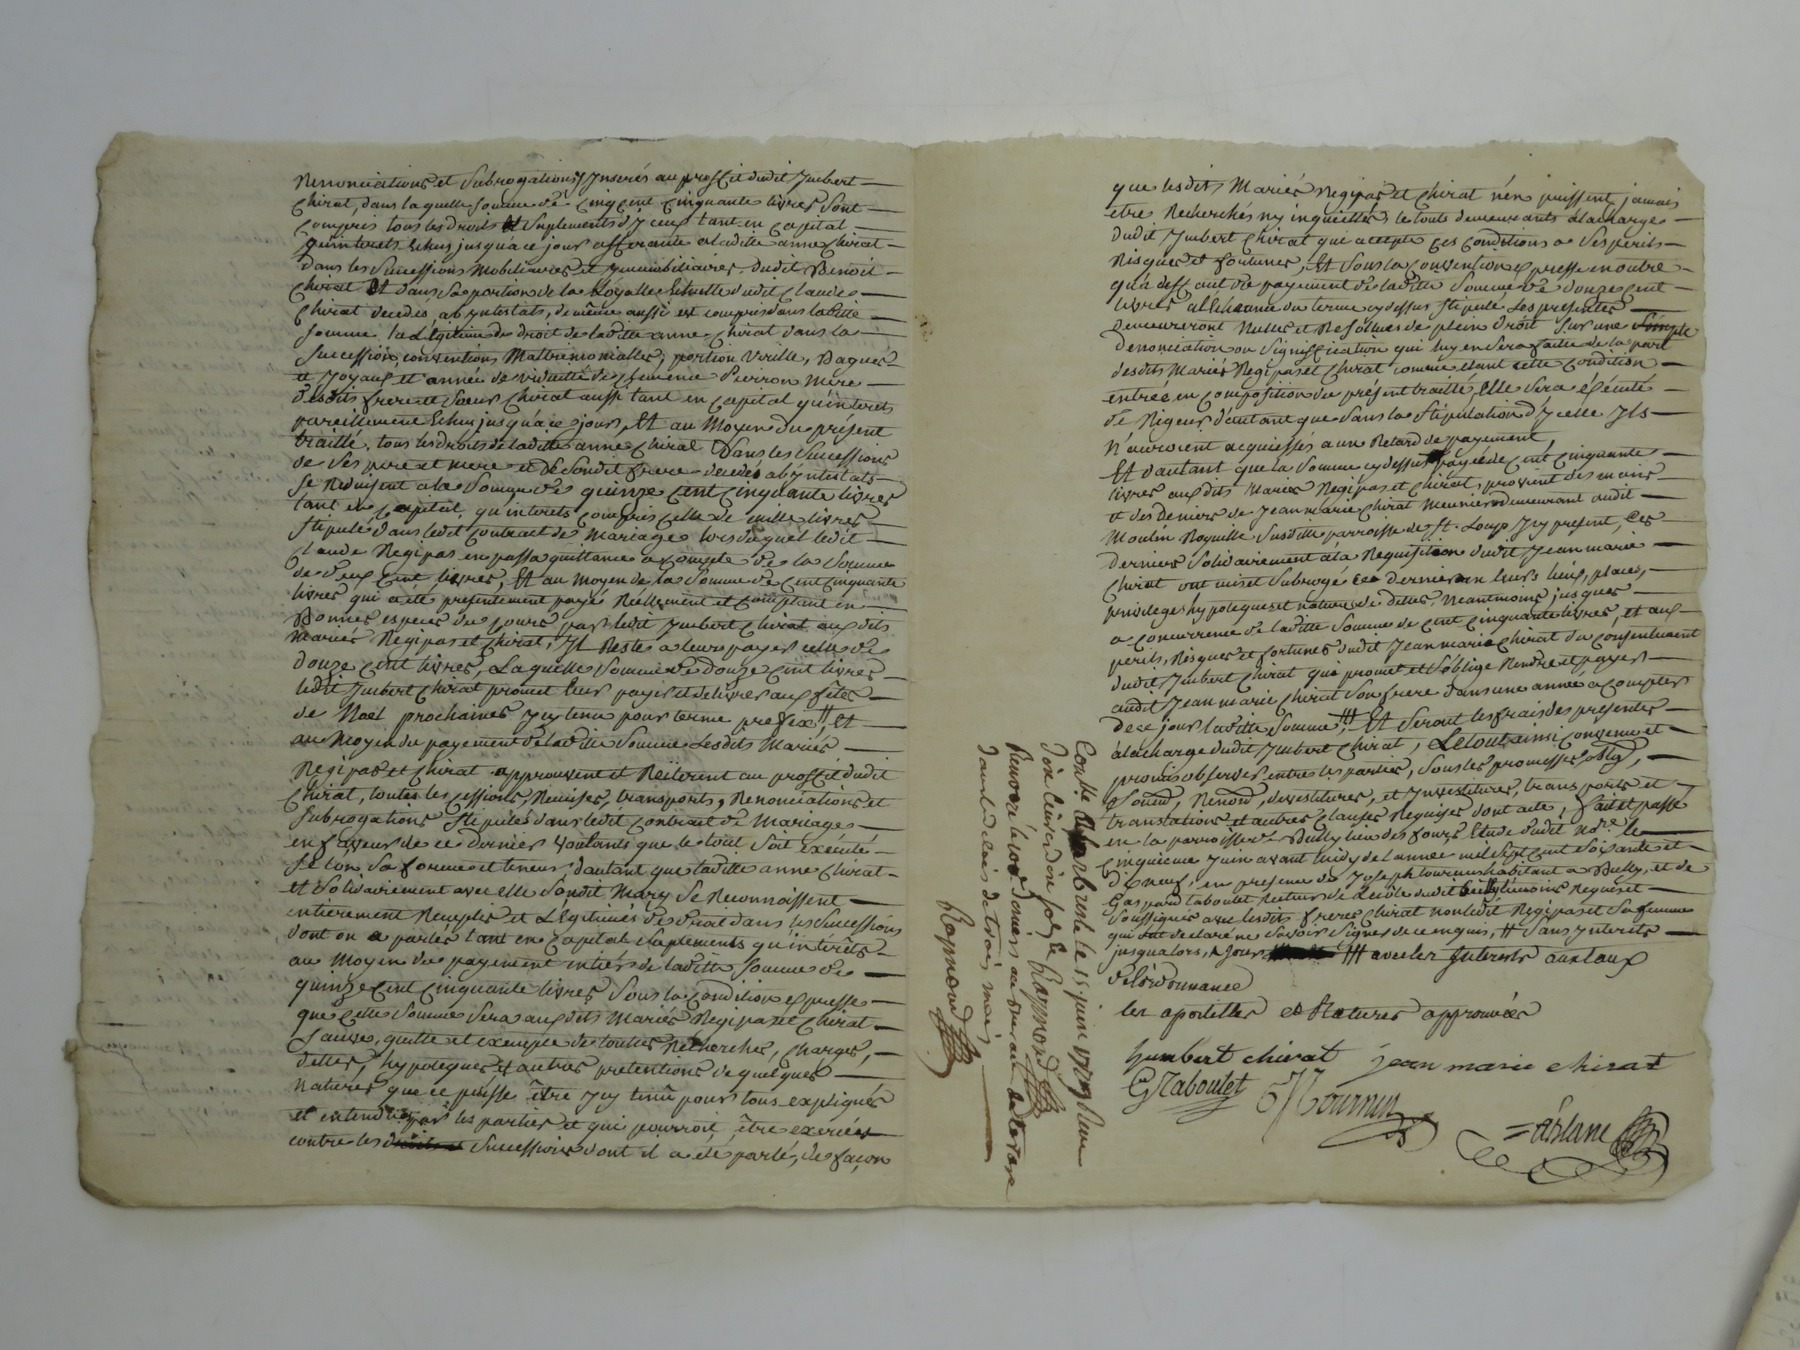 Renonciations et Subrogations y Inserés au proffit dudit Imbert
Chirat, dans laquelle somme de Cinq cent Cinquante livres sont
Compris tous les droits et Suplements d'yceux tant en Capital
qu'interets Echus jusqu'a ce jour afferants a laditte anne Chirat
dans les Successions Mobiliaires et Immobiliaires dudit Benoit
Chirat Et dans sa portion de la dudit Claude
Chirat decedés abyntestats, de même aussi est compris dans laditte
somme la Légitime de droit de laditte anne Chirat dans la
Succession, conventions Mattrimonialles, portion Virille, Bagues
et Joyaux et année de viduitté de Pierron Mere
desdits frere et Sœur Chirat aussi tant en Capital qu'interets
pareillement Echus jusqu'a ce jour, Et au Moyen du présent
traitté, tous les droits de laditte anne Chirat Dans les Successions
de Ses pere et mere et de Sondit frere decedés abyntestats
se Reduisent a la Somme de quinze Cent Cinquante livres
tant en Capital, qu'interets Compris Celle de mille livres
Stipulé dans ledit Contract de Mariage lors duquel ledit
Claude Regipas en passa quittance a compte de la Somme
de deux Cent livres, Et au moyen de la Somme de Cent Cinquante
livres qui a été presentement payé Réellement et Comptant en
Bonnes especes du Cours par ledit Imbert Chirat aux dits
mariés Regipas et Chirat, Il Reste a leur payer celle de
douze Cent livres, Laquelle Somme de douze Cent livres
ledit Imbert Chirat promet leur payer et delivrer aux fêtes
de Noel prochaines Icy tenu pour terme prefix, # Et
au Moyen du payement de laditte Somme Lesdits Mariés
Regipas et Chirat approuvent et Reïterent au proffit dudit
Chirat, toutes les Cessions, Remises, transports, Renonciations et
Subrogations Stipulés dans ledit Contract de Mariage
en faveur de ce dernier Voulants que le tout Soit exécuté
Selon Sa forme et teneur, d'autant que laditte anne Chirat
et Solidairement avec elle Sondit Mary Se Reconnoissent
entierement Remplis et Légitimés des droits dans les Successions
dont on a parlés tant en Capital, Suplements qu'interêts
au Moyen du payement entier de laditte Somme de
quinze Cent Cinquante livres Sous la Condition expresse
que Cette Somme Sera aux dits Mariés Regipas et Chirat
Sauve, quitte et exempte de touttes Recherches, Charges,
dettes, hypoteques et autres pretentions de quelques
Natures que ce puisse être Icy tenû pour tous expliqués
et entendus par les parties et qui pourroit être exercées
contre les Successions dont il a été parlé, de façon
que lesdits Mariés Regipas et Chirat n'en puissent jamais
etre Recherchés ny inquiettés le tout demeurants a la charge
dudit Imbert Chirat qui accepte Ces Conditions a Ses perils
Risques et fortunes, Et Sous la Convention expresse en outre
qu'a deffaut de payement de laditte Somme de douze Cent
livres a l'Echeance du terme cy dessus Stipulé Les présentes
demeureront Nulles et Resollues de plein droit Sur une Simple
denonciation ou Signiffication qui luy en Sera faitte de la part
desdits Mariés Regipas et Chirat comme étant cette Condition
entrée en Composition du présent traitté, Elle Sera exécuté
de Rigeur d'autant que Sans la Stipulation d'Icelle Ils
N'auroient acquiessés a un Retard de payement,
Et d'autant que la Somme cy dessus payée de Cent Cinquante
livres aux dits Mariés Regipas et Chirat, provient des mains
et des deniers de Jean marie Chirat Meunier demeurant audit
Moulin Noyaille Susditte parroisse de St. Loup Icy présent, Ces
derniers Solidairement a la Requisition dudit Jean marie
Chirat ont mis et Subrogé Ce dernier en leurs lieux, places,
privileges hypoteques et natures de dettes, Neantmoins jusques
a Concurrence de laditte Somme de Cent Cinquante livres, et aux
perils, Risques et fortunes dudit Jean marie Chirat du Consentement
dudit Imbert Chirat qui promet et S'oblige Rendre et payer
audit Jean marie Chirat Son frere dans une année a Compter
de ce jour laditte Somme, ### Et Seront les frais des presentes
a la charge dudit Imbert Chirat, Le tout ainsi Convenu et
promis observer entre les parties, Sous les promesses, oblig,
Soum, Renond, devestitures, et Investitures, transports et
translations et autres Clauses Requises dont acte, fait et passé
en la parroisse de Bully lieu des fours, Etude dudit Nore. le
Cinquieme Juin avant midy de l'année mil Sept cent Soixante et
dix neuf, en presence de Joseph tournus habitant a Bully, et de
Gaspard taboulet Recteur de L'école dudit Bully témoins Requis et
Soussignés avec lesdits freres Chirat non ledit Regipas et Sa femme
qui ont declaré ne Savoir Signer de ce enquis, # Sans Interets
jusqu'alors, ### avec les Interests aux taux
de l'ordonnance
les apostilles et Ratures approuvées
humbert chirat jean marie chirat
G. Taboulet J Tournu
Ablanc
Contlle. a Larbresle le 15 juin 1779
Raymond
dans le delais de trois mois
Raymond